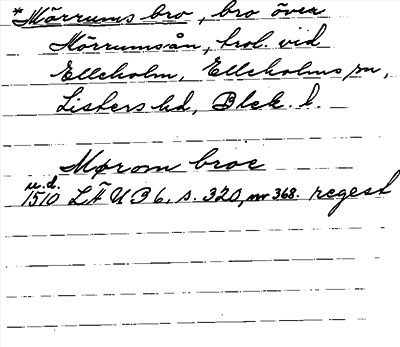 *Mörrums bro, bro över
Mörrumsån, trol. vid
Elleholm, Elleholms sn,
Listers hd, Blek. l.
Mørom broe
u.d.
1510 LÄUB 6, s. 320, nr 368. regest